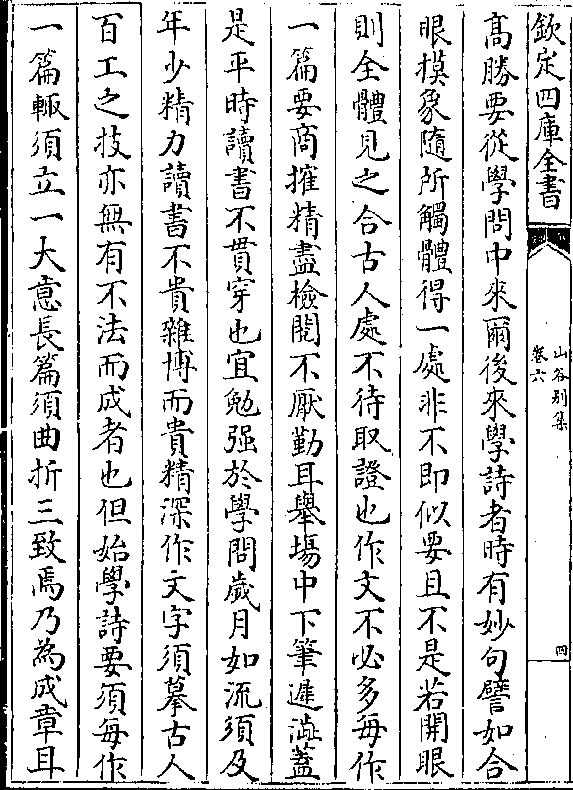 欽定四庫全書
山谷别集
卷六
四
髙勝要從學問中來爾後來學詩者時有妙句譬如合
眼摸象隨所觸體得一處非不即似要且不是若開眼
則全體見之合古人處不待取證也作文不必多每作
一篇要商搉精盡檢閱不厭勤耳舉場中下筆遲澁蓋
是平時讀書不貫穿也宜勉强於學問歲月如流須及
年少精力讀書不貴雜博而貴精深作文字須摹古人
百工之技亦無有不法而成者也但始學詩要須每作
一篇輙須立一大意長篇須曲折三致焉乃為成章耳